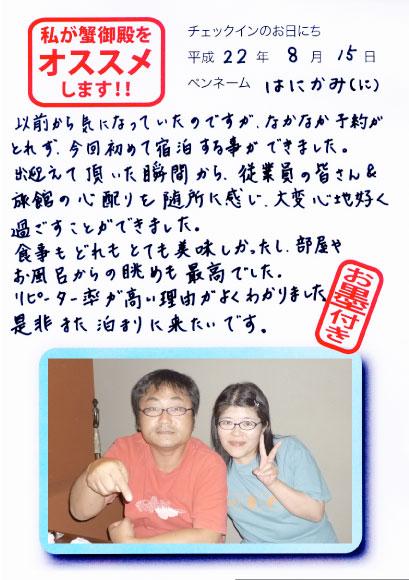 私が蟹御殿を
オススメ
します!!
チェックインのお日にち
平成 22 年 8 月 15 日
ペンネーム はにかみ(に)
以前から気になっていたのですが、なかなか予約が
とれず、今回初めて宿泊する事ができました。
出迎えて頂いた瞬間から、従業員の皆さん&
旅館の心配りを随所に感じ、大変心地好く
過ごすことができました。
食事もどれもとても美味しかったし、部屋や
お風呂からの眺めも最高でした。
リピーター率が高い理由がよくわかりました。
是非また泊まりに来たいです。
お墨付き